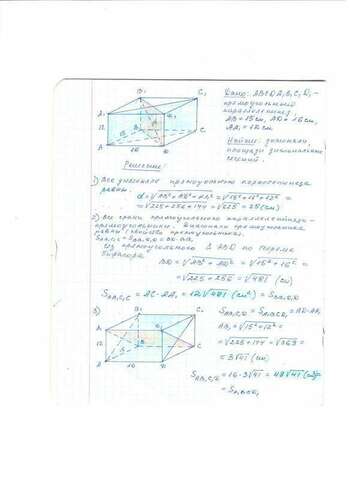 Дано: ABCDA₁B₁C₁D₁ -
прямоугольный
параллелепипед.
AB = 15 см, AD = 16 см,
AA₁ = 12 см.
Найти: диагонали,
площади диагональных
сечений.
Решение:
1) Все диагонали прямоугольного параллелепипеда
равны.
d = √AB² + AD² + AA₁² = √15² + 16² + 12² =
= √225 + 256 + 144 = √625 = 25 (см)
2) Все грани прямоугольного параллелепипеда -
прямоугольники. Диагонали прямоугольника
равны (свойство прямоугольника).
S AA₁C₁C = S BB₁D₁D =
Из прямоугольного Δ ABD по теореме
Пифагора
BD = √AB² + AD² = √15² + 16² =
= √225 + 256 = √481 (см)
S AA₁C₁C = AC · AA₁ = 12√481 (см²) = S BB₁D₁D
3)
AB₁ = √15² + 12² =
= √225 + 144 = √369 =
= 3√41 (см)
= 16 · 3√41 = 48√41 (см²)
A₁
B₁
C₁
A
B
C
12
16